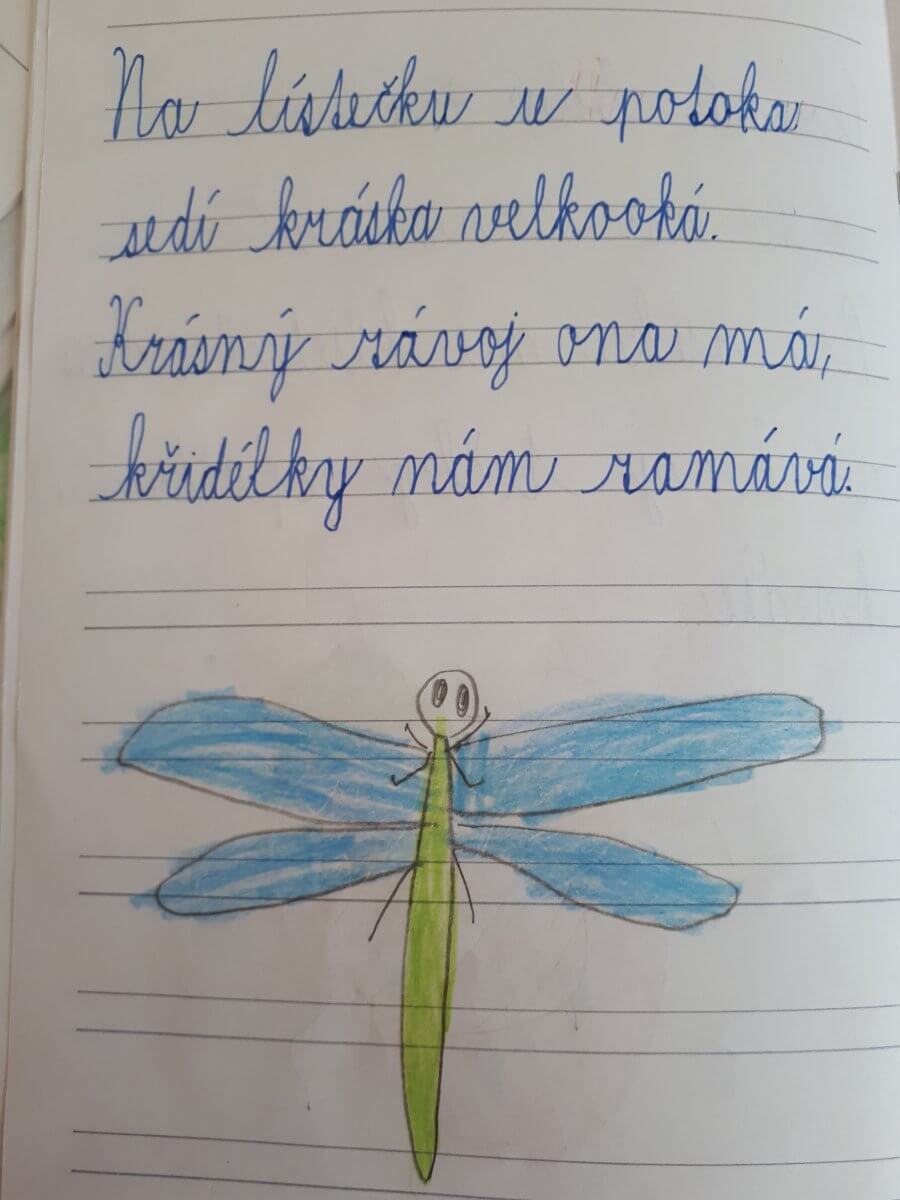 Na lístečku u potoka
sedí kráska velkooká.
Krásný závoj ona má,
křidélky nám zamává.